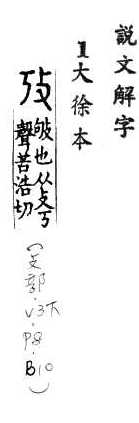 說文解字
1大徐本
攷
也从攴丂
聲苦浩切
(攴部.V3下.P8.B10)